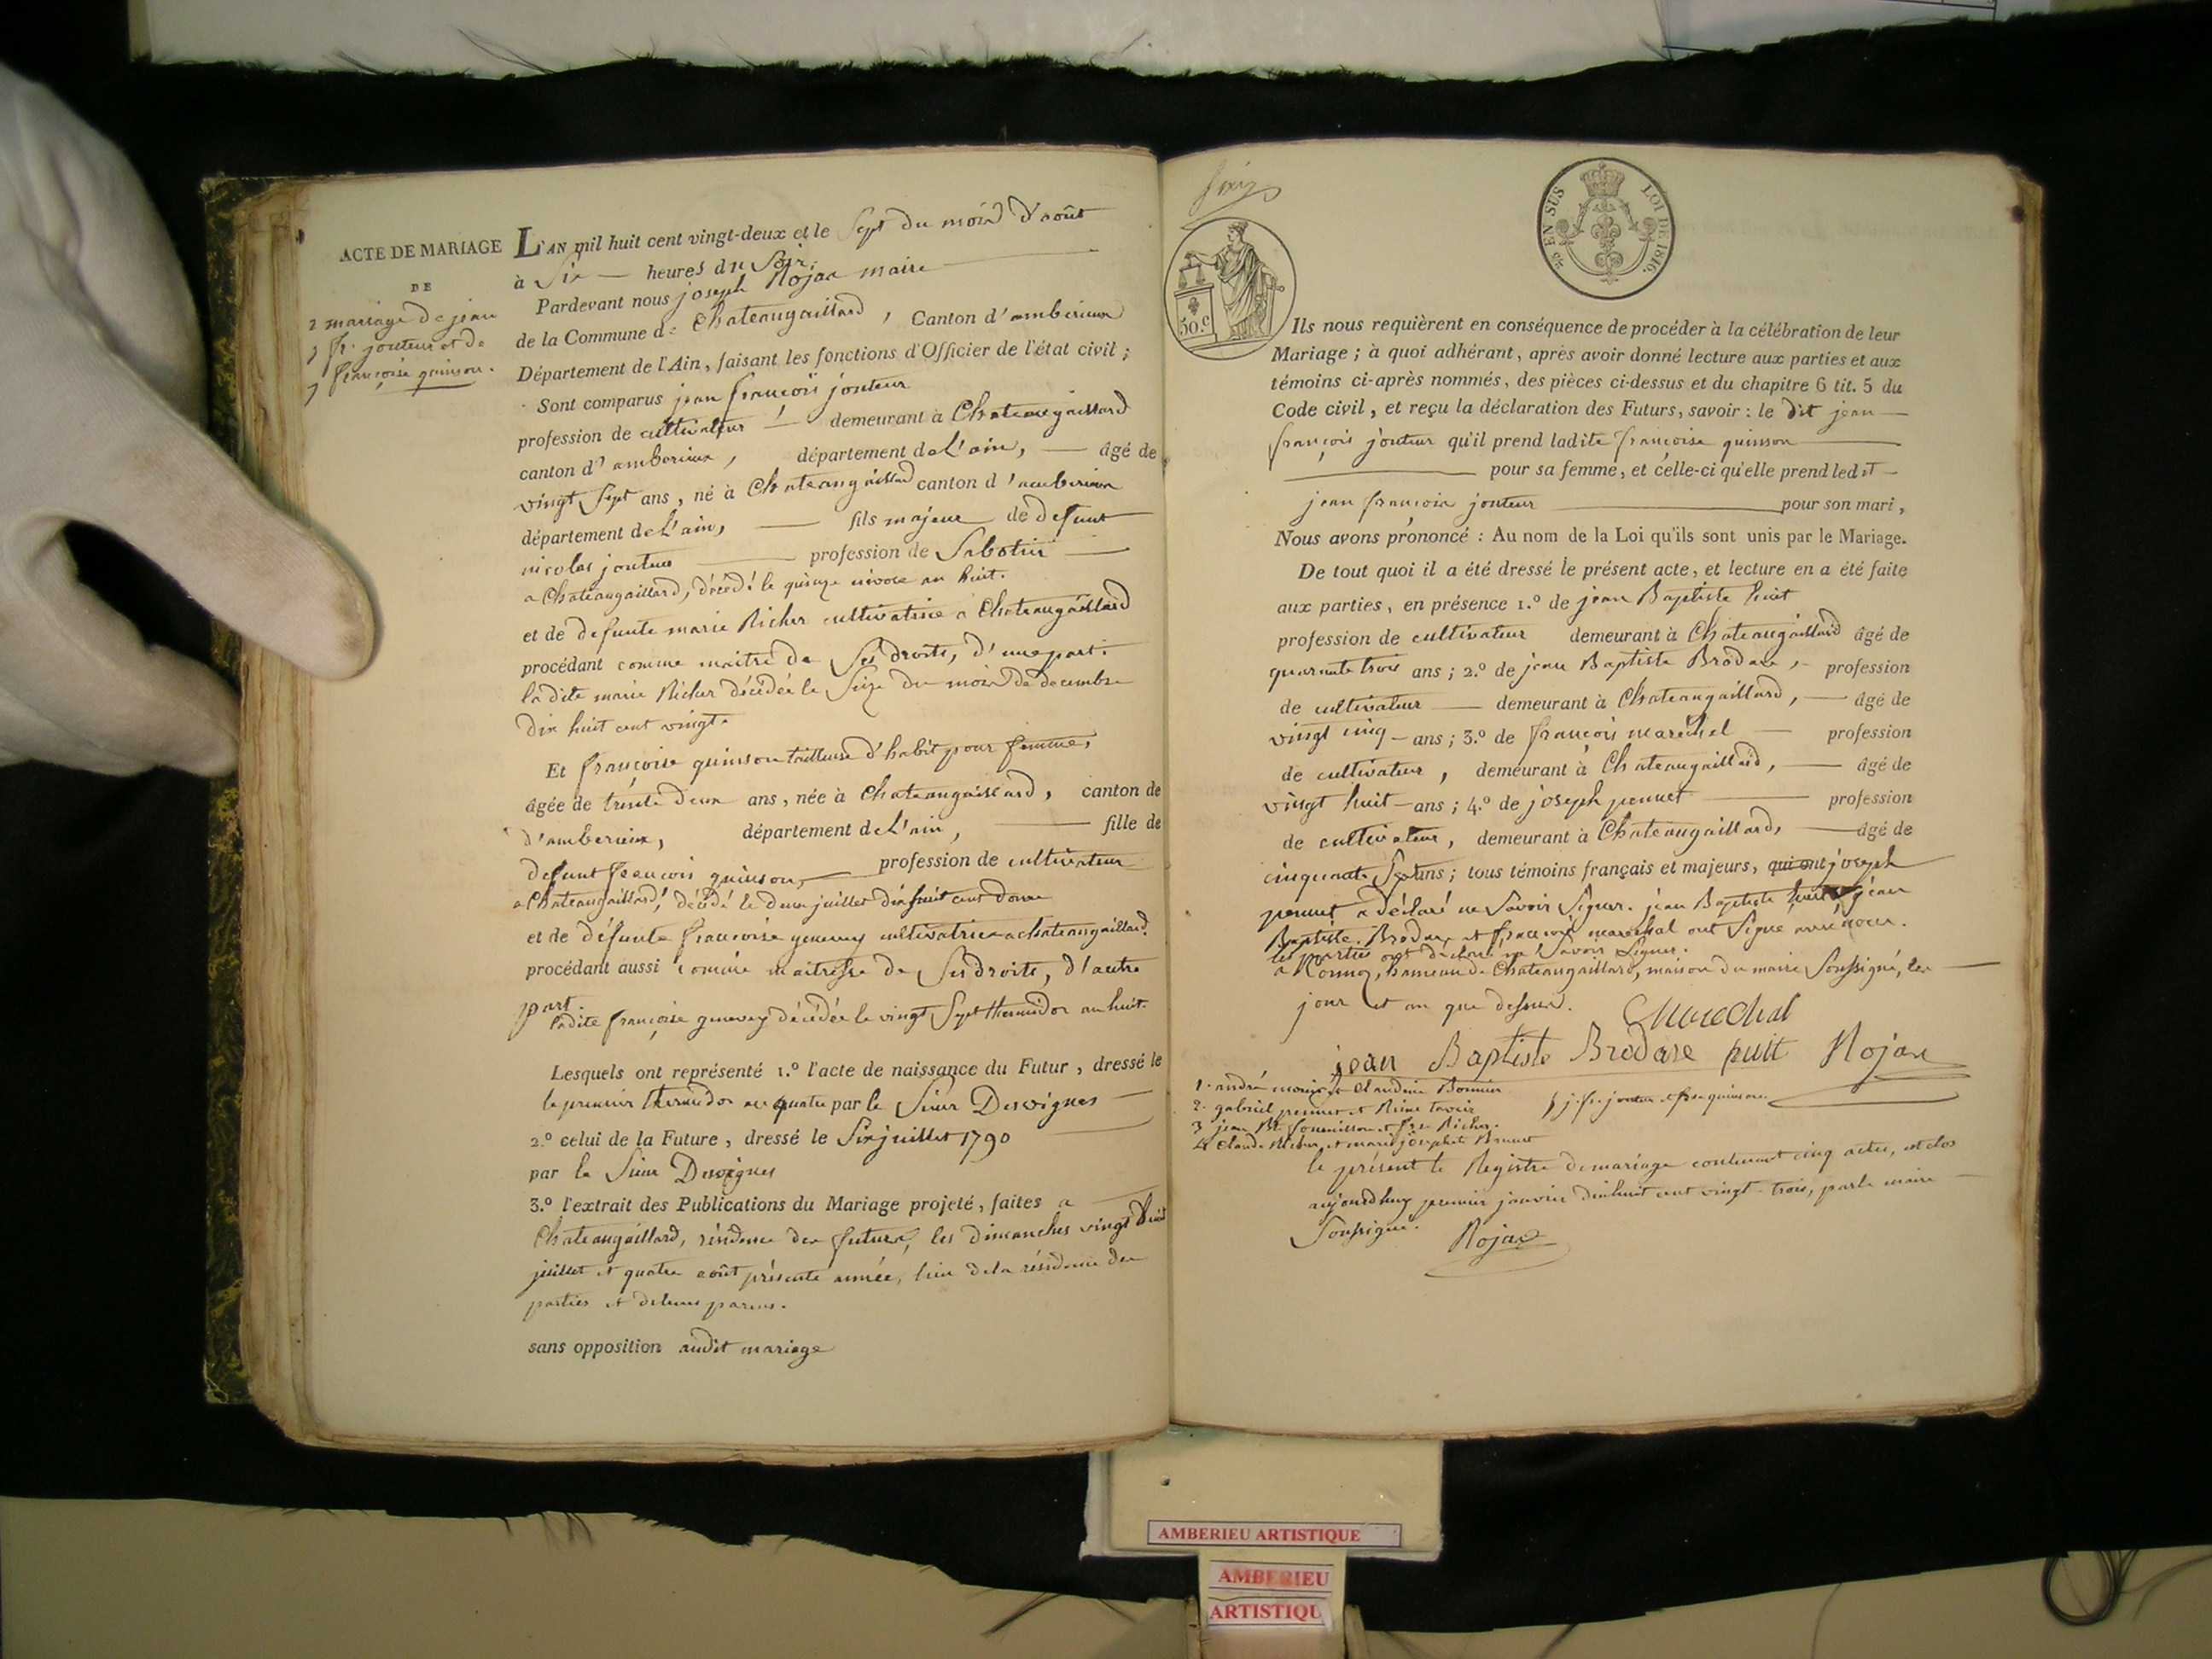 ACTE DE MARIAGE
DE
mariage de jean
fr. jouteur et de
françoise quinson.
L'AN mil huit cent vingt-deux et le Sept du mois d'août
à Six — heures du Soir.
Pardevant nous joseph Rojax maire
de la Commune de Chateaugaillard, Canton d'amberieux
Département de l'Ain, faisant les fonctions d'Officier de l'état civil;
Sont comparus jean françois jouteur
profession de cultivateur — demeurant à Chateaugaillard
canton d'amberieux, département de L'ain, — âgé de
vingt Sept ans, né à Chateaugaillard canton d'amberieux
département de L'ain, — fils majeur de defunt
nicolas jouteur — profession de Sabotier —
a Chateaugaillard, décédé le quinze nivose an huit.
et de defunte marie Richer cultivatrice a Chateaugaillard
procédant comme maitre de Ses droits, d'une part.
ladite marie Richer décédée le Seize du mois de decembre
dix huit cent vingt.
Et françoise quinson tailleuse d'habit pour femme,
âgée de trente deux ans, née à Chateaugaillard, canton de
d'amberieux, département de L'ain, — fille de
defunt françois quinson, — profession de cultivateur
a Chateaugaillard, décédé le deux juillet dix huit cent douze
et de défunte françoise genevey cultivatrice a chateaugaillard.
procédant aussi comme maitresse de Ses droits, d'autre
part.
ladite françoise genevey décédée le vingt Sept thermidor an huit.
Lesquels ont représenté 1.º l'acte de naissance du Futur, dressé le
le premier thermidor an quatre par le Sieur Desvignes —
2.º celui de la Future, dressé le Six juillet 1790
par le Sieur Desvignes
3.º l'extrait des Publications du Mariage projeté, faites a
Chateaugaillard, résidence des futurs, les dimanches vingt huit
juillet et quatre août présente année, lieu de la résidence des
parties et de leurs parens.
sans opposition audit mariage
EN SUS
LOI DE 1816.
50.c
Ils nous requièrent en conséquence de procéder à la célébration de leur
Mariage; à quoi adhérant, après avoir donné lecture aux parties et aux
témoins ci-après nommés, des pièces ci-dessus et du chapitre 6 tit. 5 du
Code civil, et reçu la déclaration des Futurs, savoir: le dit jean —
françois jouteur qu'il prend ladite françoise quinson —
— pour sa femme, et celle-ci qu'elle prend ledit —
jean françois jouteur — pour son mari,
Nous avons prononcé: Au nom de la Loi qu'ils sont unis par le Mariage.
De tout quoi il a été dressé le présent acte, et lecture en a été faite
aux parties, en présence 1.º de jean Baptiste huit
profession de cultivateur demeurant à Chateaugaillard âgé de
quarante trois ans; 2.º de jean Baptiste Brodare, — profession
de cultivateur — demeurant à Chateaugaillard, — âgé de
vingt cinq — ans; 3.º de françois maréchal — profession
de cultivateur, demeurant à Chateaugaillard, — âgé de
vingt huit — ans; 4.º de joseph pennet — profession
de cultivateur, demeurant à Chateaugaillard, — âgé de
cinquante Sept ans; tous témoins français et majeurs, qui ont joseph
pennet a déclaré ne Savoir Signer. jean Baptiste jean
Baptiste Brodare et françois marechal ont Signé avec nous.
les parties ont déclaré ne Savoir Signer.
a Cormoz, hameau de Chateaugaillard, maison du maire Soussigné, les —
jour et an que dessus.
Marechal
jean Baptiste Brodare Rojax
1. andré et claudine Bonnier
2. gabriel pennet et Reine
3 jean Bte et fse Richer.
4 Claude Richer, et marie josephte
5 j. fr. jouteur et fse quinson.
le présent le Registre de mariage contenant cinq actes, est clos
aujourdhuy premier janvier dix huit cent vingt-trois, par le maire
Soussigné.
Rojax
AMBERIEU ARTISTIQUE
AMBERIEU
ARTISTIQU